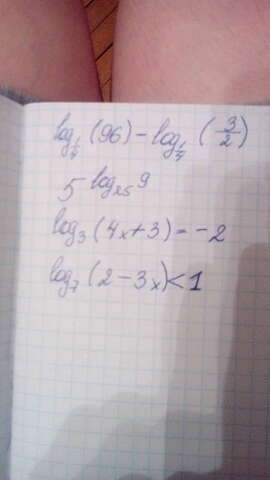 log_{1/4}(96) - log_{1/4}(3/2)
5^{log_{25} 9}
log_3(4x+3) = -2
log_7(2-3x) < 1